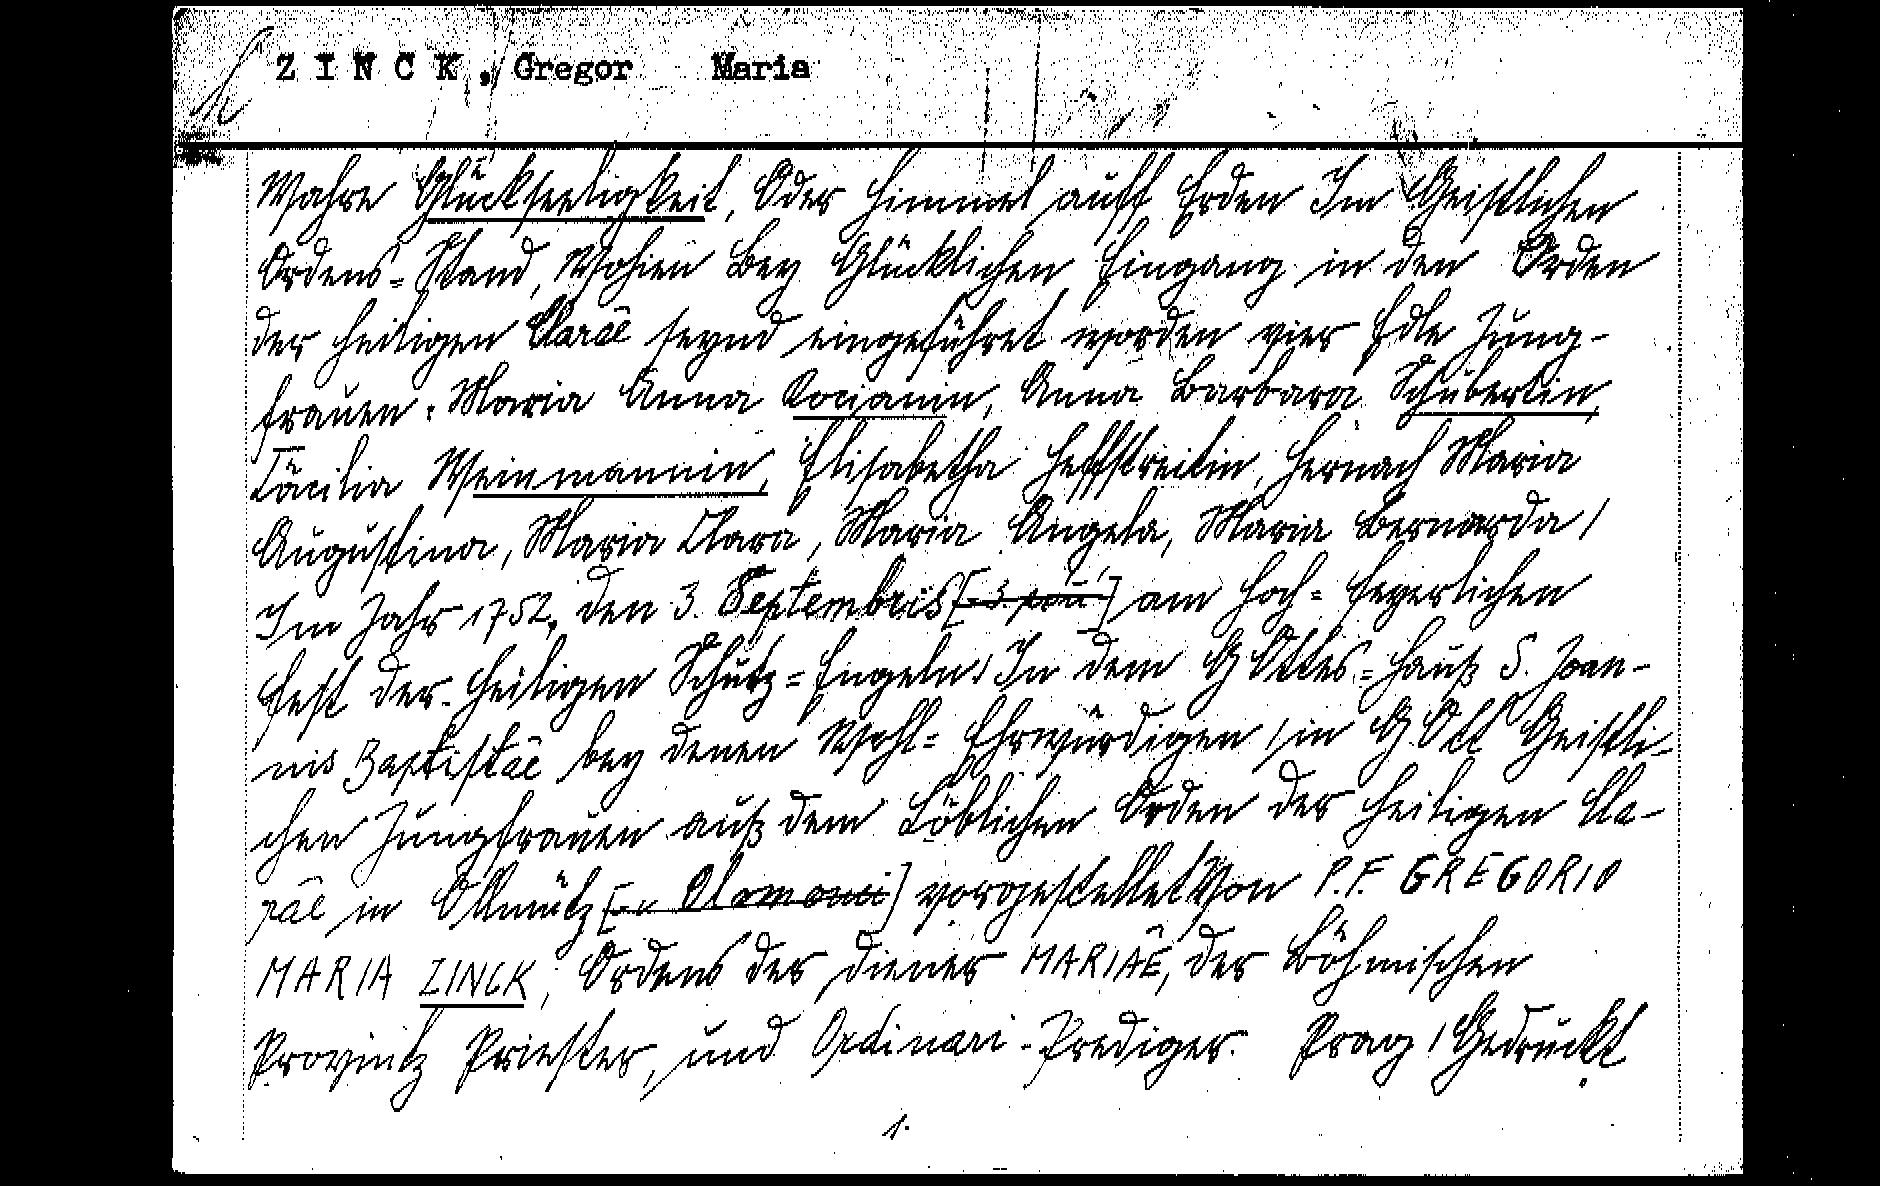 Z I N C K , Gregor Maria
Wahre Glückseeligkeit, Oder Himmel auff Erden Im Geistlichen
Ordens=Stand, Wohien Bey Glücklichen Eingang in den Orden
der Heiligen Clarae seynd eingeführet worden vier Edle Jung-
frauen: Maria Anna Kocianin, Anna Barbara Schubertin,
Cäcilia Weinmannin, Elisabetha Heffstreitin, Hernach Maria
Augustina, Maria Clara, Maria Angela, Maria Bernarda /
Im Jahr 1752, den 3. Septembris [ ] am Hoch=Feyerlichen
Fest der Heiligen Schutz=Engeln / In dem GOttes=Hauß S. Joan-
nis Baptistae bey denen Wohl=Ehrwürdigen / in GOtt Geistli-
chen Jungfrauen auß dem Löblichen Orden der Heiligen Cla-
rae in Ollmütz [ Olomouci] vorgestellet Von P. F. GREGORIO
MARIA ZINCK, Ordens der Diener MARIAE, der Böhmischen
Provintz Priester, und Ordinari-Prediger. Prag / Gedruckt
1.